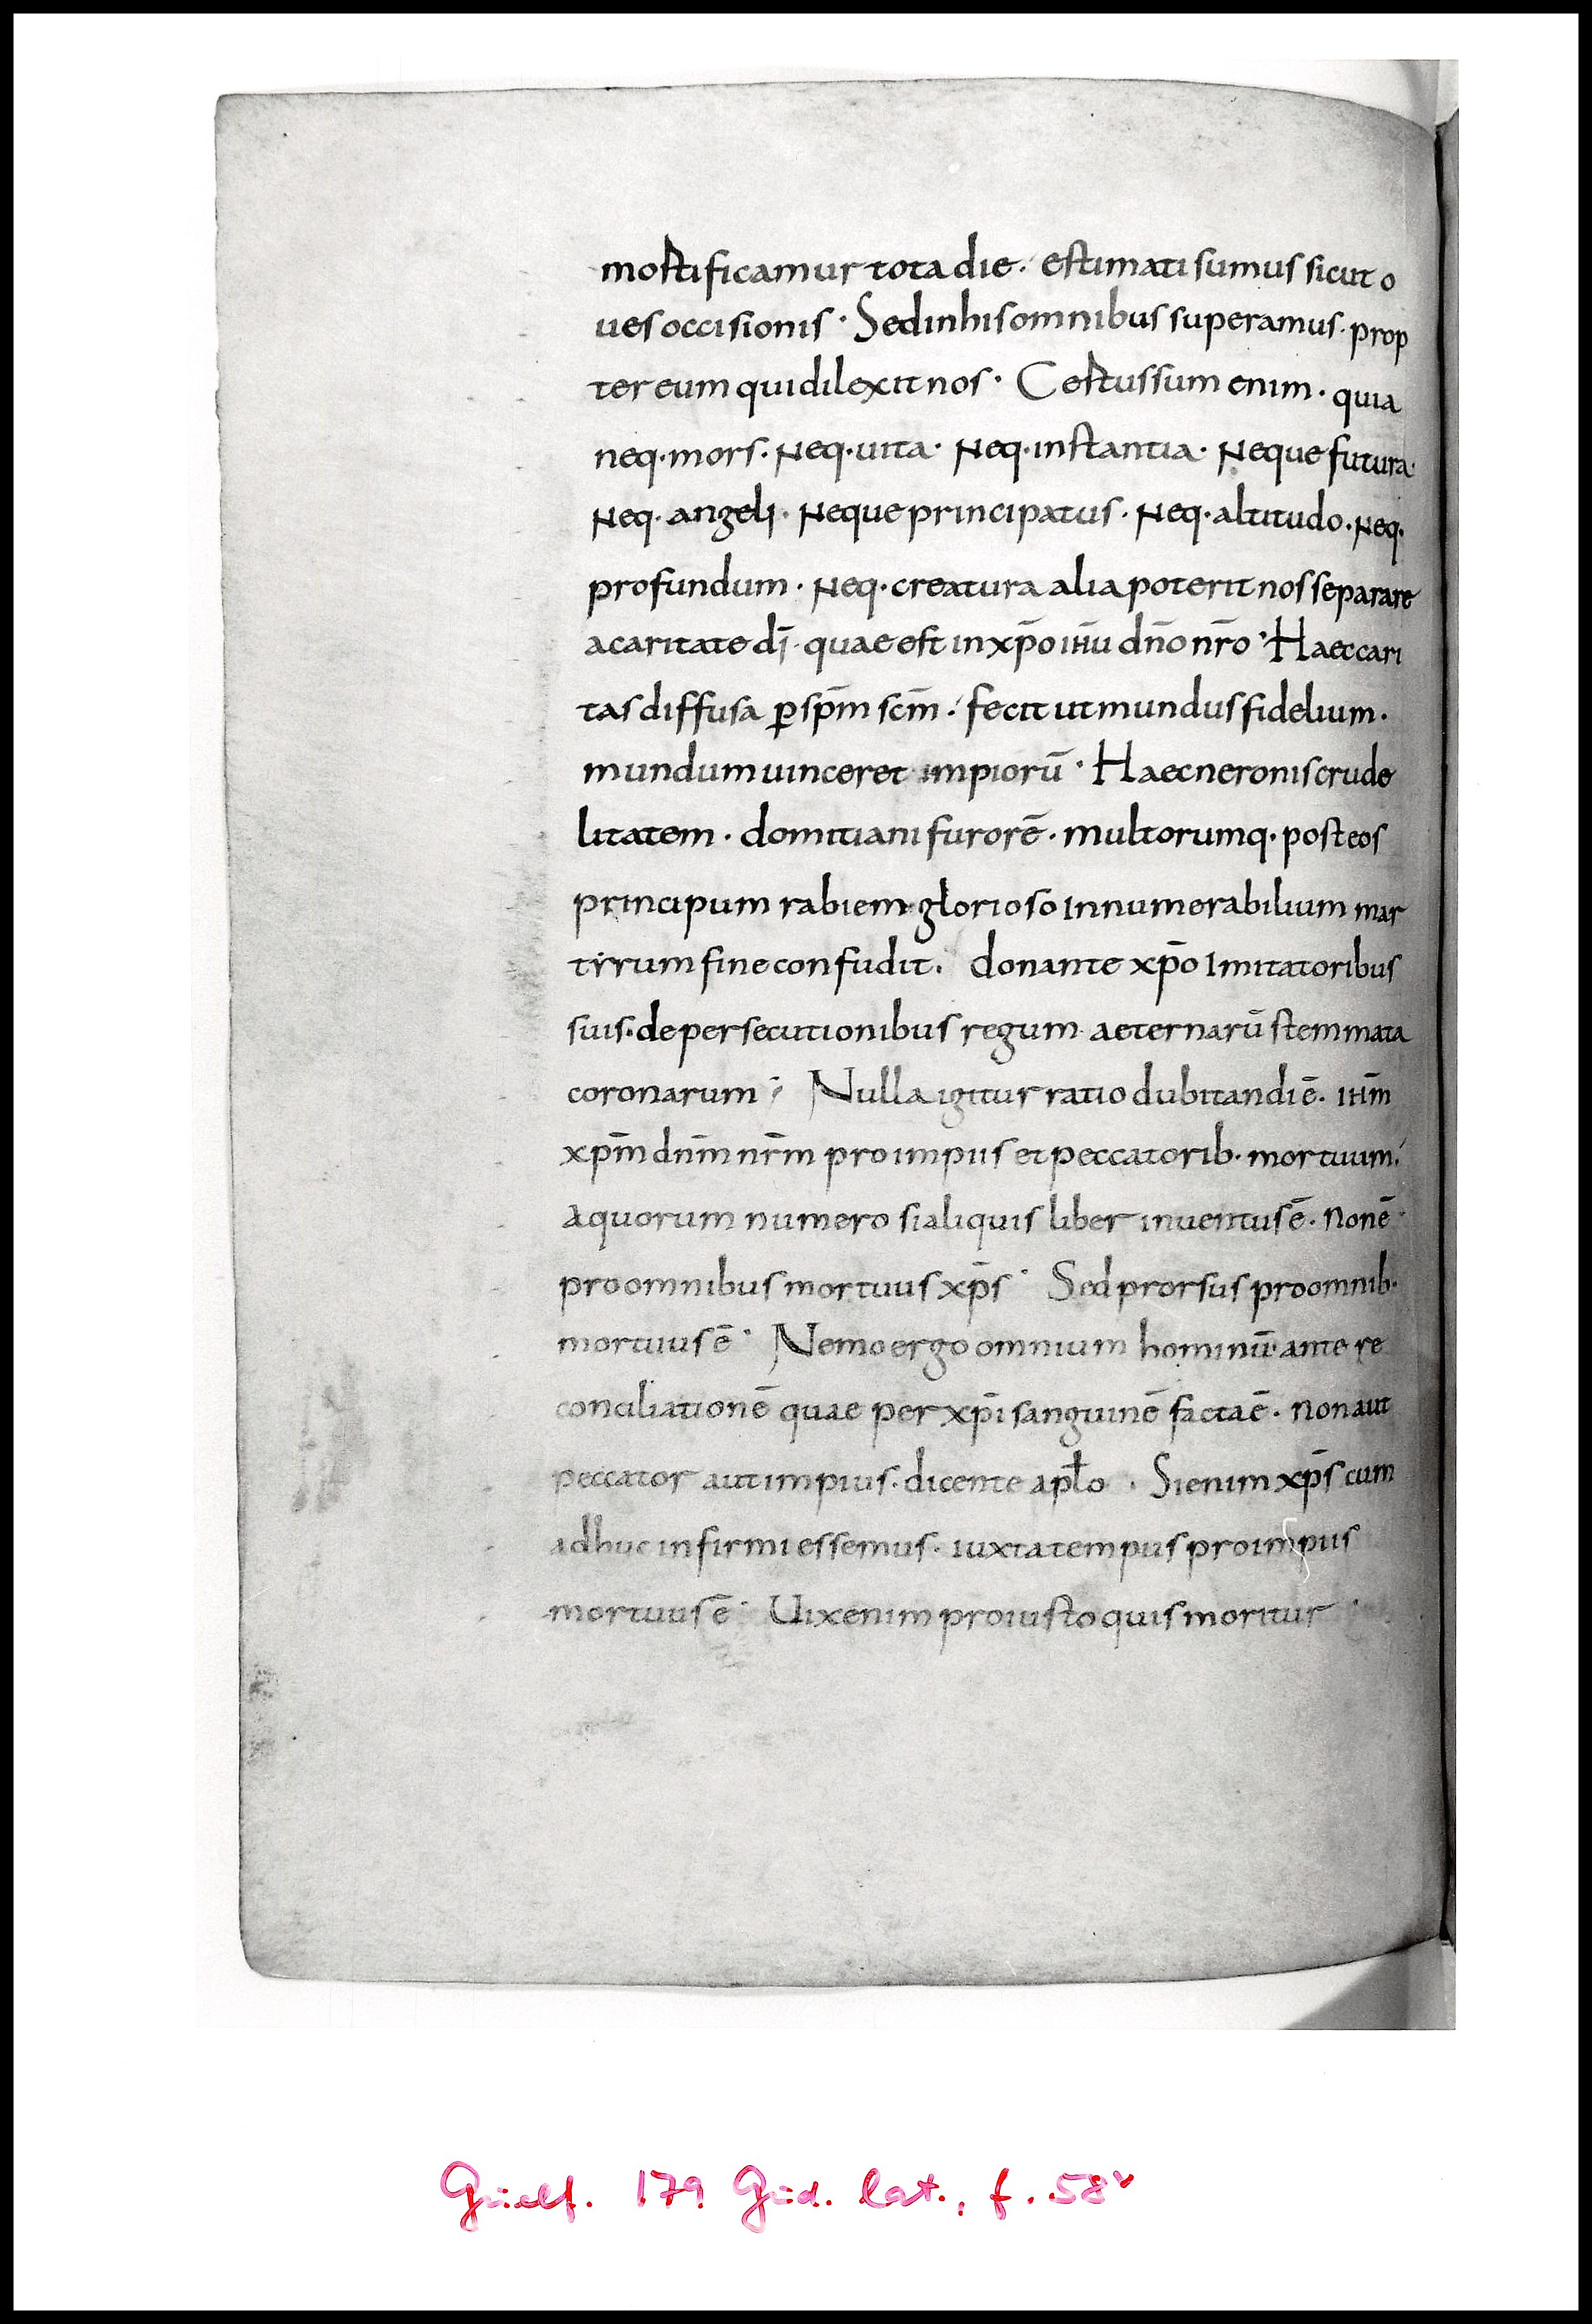 mortificamur tota die · estimati sumus sicut o
ues occisionis · Sed in his omnibus superamus · prop
ter eum qui dilexit nos · Certus sum enim · quia
neq· mors · Neq· uita · Neq· instantia · Neque futura ·
Neq· angeli · Neque principatus · Neq· altitudo · Neq·
profundum · Neq· creatura alia poterit nos separare
a caritate dī · quae est in xp̄o ihū dn̄o nr̄o · Haec cari
tas diffusa ꝑ sp̄m scm̄ · fecit ut mundus fidelium ·
mundum uinceret impiorū · Haec neronis crude
litatem · domitiani furorē · multorumq· post eos
principum rabiem · glorioso innumerabilium mar
tyrum fine confudit · donante xp̄o Imitatoribus
suis · de persecutionibus regum aeternarū stemmata
coronarum ; Nulla igitur ratio dubitandi ē · ihm̄
xpm̄ dnm̄ nrm̄ pro impiis et peccatorib· mortuum ·
A quorum numero si aliquis liber inuentus ē · non ē ·
pro omnibus mortuus xp̄s · Sed prorsus pro omnib·
mortuus ē · Nemo ergo omnium hominū · ante re
conciliationē quae per xp̄i sanguinē facta ē · non aut
peccator aut impius · dicente apl̄o · Si enim xp̄s cum
adhuc infirmi essemus · iuxta tempus pro impiis
mortuus ē · Uix enim pro iusto quis moritur ·
Guelf. 179 Gud. lat., f. 58v